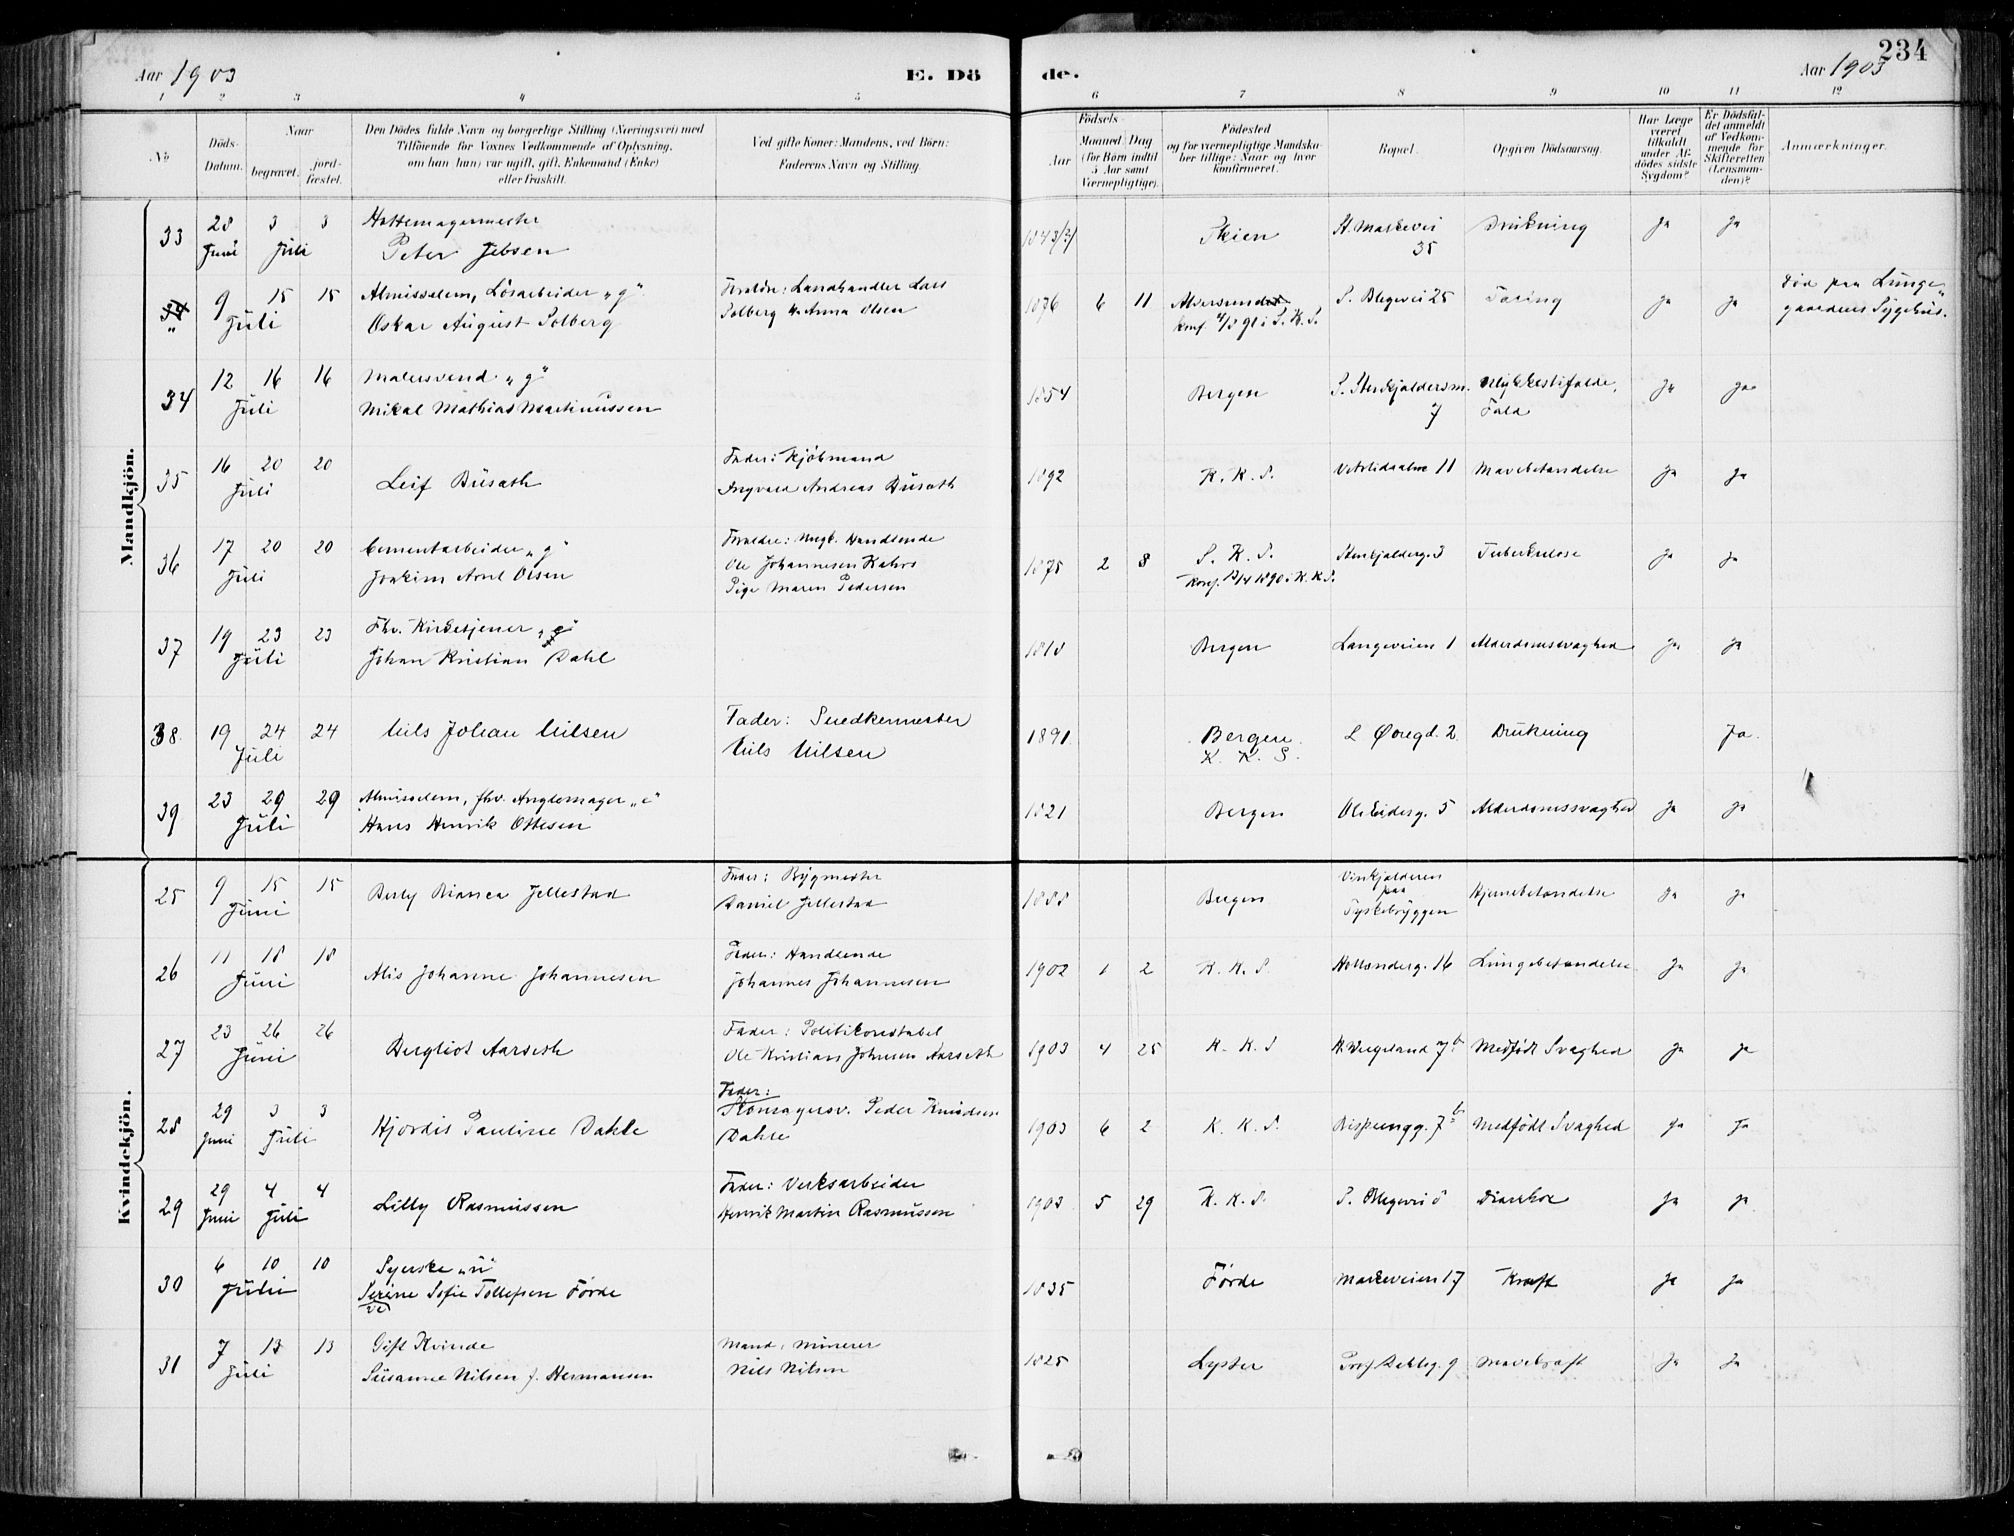 234
Aar 1903 E. Dö de. Aar 1903
1 2 3 4 5 6 7 8 9 10 11 12
No
Döds-Datum.
Naar
begravet.
jordfæstet.
Den Dödes fulde Navn og borgerlige Stilling (Næringsvei) med
Tilföiende for Voxnes Vedkommende af Oplysning,
om han (hun) var ugift, gift, Enkemand (Enke)
eller fraskilt.
Ved gifte Koner: Mandens, ved Börn:
Faderens Navn og Stilling.
Födsels-
Aar
Maaned Dag
(for Börn indtil
5 Aar samt
Værnepligtige).
Födested
og for værnepligtige Mandska-
ber tillige: Naar og hvor
konfirmeret.
Bopæl.
Opgiven Dödsaarsag.
Har Læge
været
tilkaldt
under Af-
dödes sidste
Sygdom?
Er Dödsfal-
det anmeldt
af Vedkom-
mende for
Skifteretten
(Lensman-
den)?
Anmærkninger.
Mandkjön.
33 28 Juni 3 3 Juli
Hattemagermester
Peter Jebsen
1843 Skien
St. Markevei 35
Drukning Ja Ja
9 15 15 Juli
Almisselem, Lösarbeider „g"
Oskar August Solberg
Forældre: Landhandler Lars
Solberg og Anna Olsen
1876 6 11 Alversund
S. Blegevei 25 Ja Ja
Död paa Lunge-
gaardens Sygehus.
34 12 16 16 Juli
Malersvend „g"
Mikal Mathias Martinussen
1854 Bergen
7
Ulykkestilfælde,
Fald
Ja Ja
35 16 20 20 Juli
Leif Busath
Fader: Kjöbmand
Ingvald Andreas Busath
1892 K. K. S. 11 Mavebetændelse Ja Ja
36 17 20 20 Juli
Cementarbeider „g"
Joakim Arnt Olsen
Forældre: Ungk. Handlende
Ole Johannesen Kahrs
Pige Maren Pedersen
1875 2 8 S. K. S.
Konf. 13/4 1890 i K. K. S.
Stenkjelderg. 3 Tuberkulose Ja Ja
37 19 23 23 Juli
Fhv. Kirketjener „g"
Johan Kristian Dahl
1818 Bergen Langeveien 1 Alderdomssvaghed Ja Ja
38. 19 24 24 Juli
Nils Johan Nilsen
Fader: Snedkermester
Nils Nilsen
1891. Bergen.
K. K. S.
L Øvregd. 2. Drukning Ja.
39 23 29 29 Juli
Almisselem, fhv. „e"
Hans Henrik Ottesen
1821 Bergen Ole Irgensg. 5 Alderdomssvaghed Ja Ja
Kvindekjön.
25 9 15 15 Juni
Berly Bianca Jellestad
Fader: Bygmester
Daniel Jellestad
1888 Bergen
Vinkjelderen
paa
Tyskebryggen
Hjernebetændelse Ja Ja
26 11 18 18 Juni
Alis Johanne Johannesen
Fader: Handlende
Johannes Johannesen
1902 1 2 K. K. S. Hollænderg. 16 Lungebetændelse Ja Ja
27 23 26 26 Juni
Bergliot Aarseth
Fader: Politikonstabel
Ole Kristian Johnsen Aarseth
1903 4 25 K. K. S Medfödt Svaghed Ja Ja
28 29 Juni 3 3 Juli
Hjordis Pauline Dahle
Fader:
Skomagersv. Peder Knudsen
Dahle
1903 6 2 K. K. S. Bispeengg. 7 b Medfödt Svaghed Ja Ja
29 29 Juni 4 4 Juli
Lilly Rasmussen
Fader: Verksarbeider
Henrik Martin Rasmussen
1903 5 29 K. K. S. S. Blegevei 8 Diarrhoe Ja Ja
30 6 10 10 Juli
Syerske „u"
Serine Sofie Tollefsen Förde
1835 Förde Markeveien 17 Kræft Ja Ja
31 7 13 13 Juli
Gift Kvinde
Susanne Nilsen f. Hermansen
Mand, Minerer
Nils Nilsen
1825 Lyster Prof Dahlsg. 9 Mavekræft Ja Ja